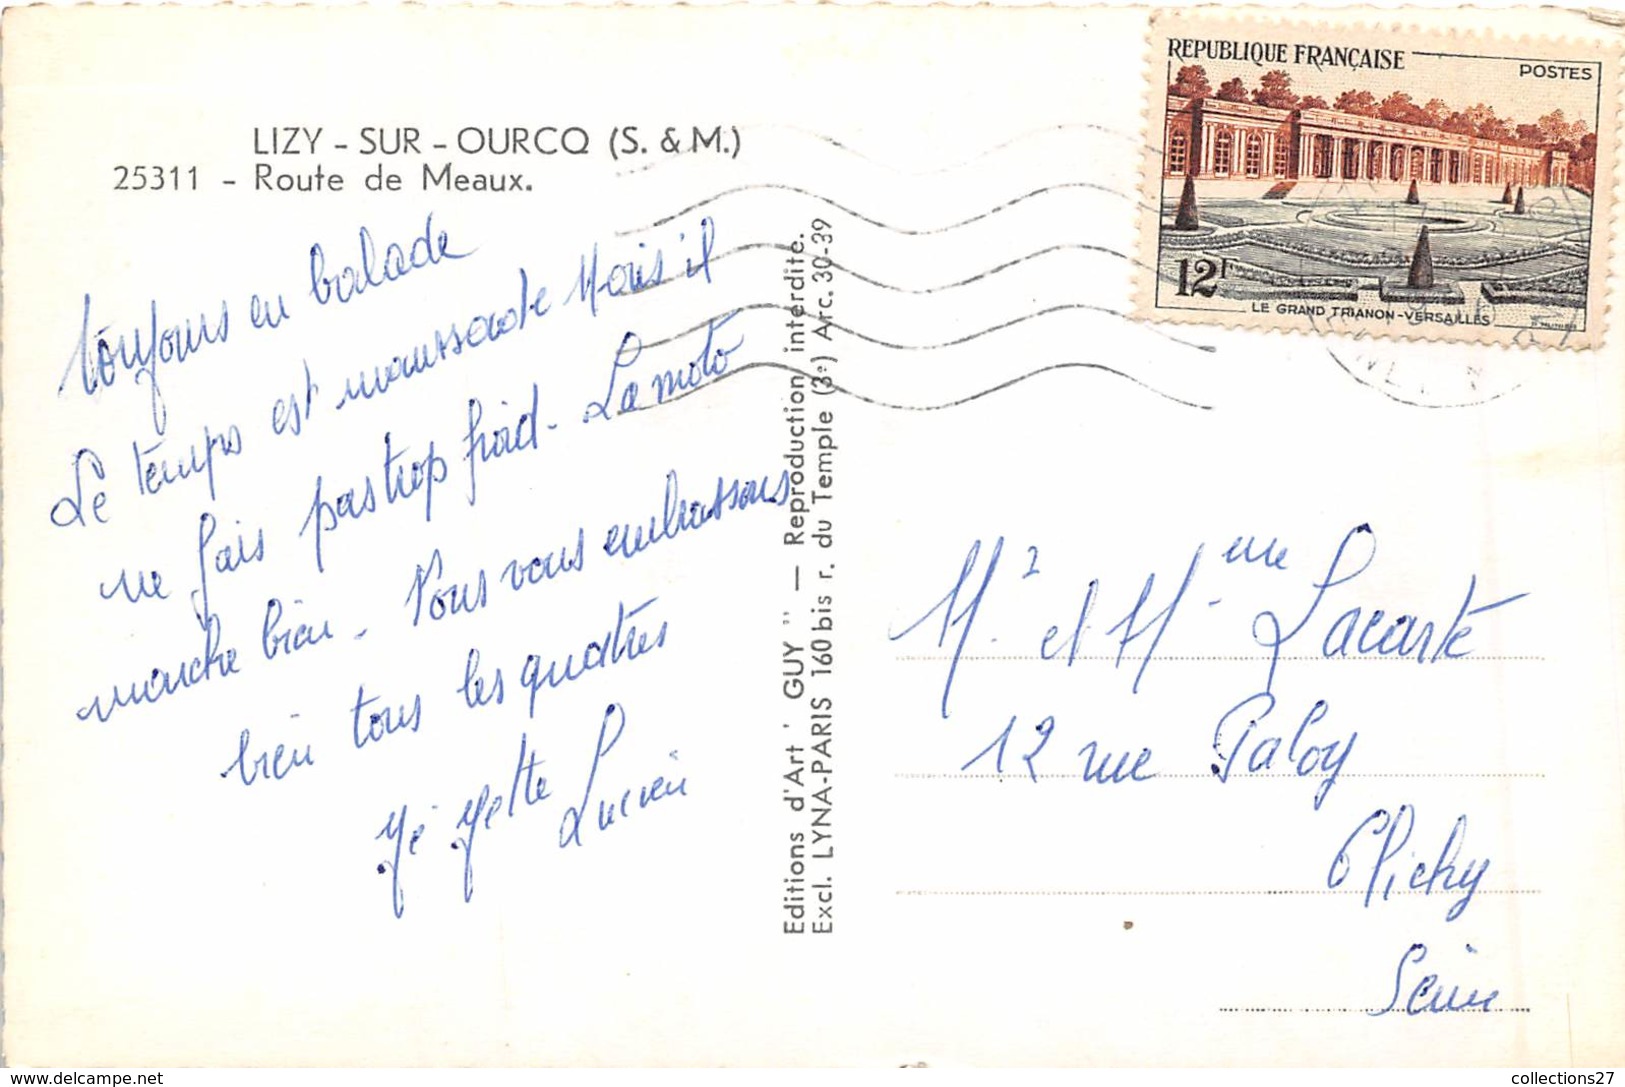 LIZY - SUR - OURCQ (S. & M.)
25311 - Route de Meaux.
Toujours en balade
Le temps est maussade Mais il
ne fais pas trop froid - La moto
marche bien - Nous vous embrassons
bien tous les quatres
Yé Yette Lucien
Editions d'Art " GUY " — Reproduction interdite.
Excl. LYNA-PARIS 160 bis r. du Temple (3e) Arc. 30-39
REPUBLIQUE FRANÇAISE
POSTES
12F
LE GRAND TRIANON-VERSAILLES
Mr et Mme Lacaste
12 rue Paloy
Clichy
Seine
www.delcampe.net
collections27